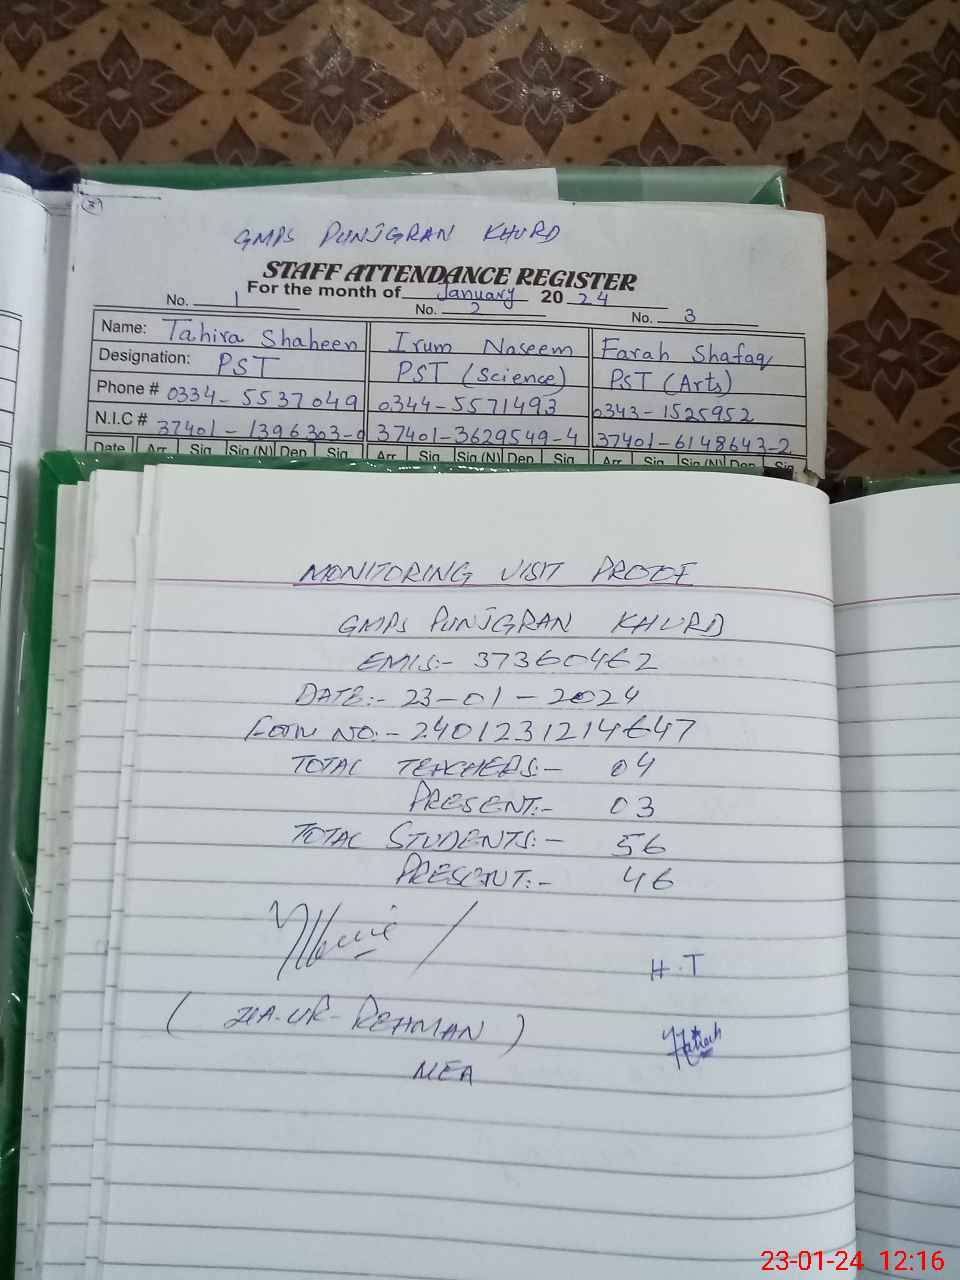 GMPS PUNJGRAN KHURD
STAFF ATTENDANCE REGISTER
For the month of January 2024
No. 1 No. 2 No. 3
Name: Tahira Shaheen Irum Naseem Farah Shafaq
Designation: PST PST (Science) PST (Arts)
Phone # 0334-5537049 0344-5571493 0343-1525952
N.I.C # 37401-1396303-0 37401-3629549-4 37401-6148643-2
Date Arr Sig Sig (N) Dep Sig Arr Sig Sig (N) Dep Sig Arr Sig Sig (N) Dep Sig
MONITORING VISIT PROOF
GMPS PUNJGRAN KHURD
EMIS:- 37360462
DATE:- 23-01-2024
FORM NO:- 2401231214647
TOTAL TEACHERS:- 04
PRESENT:- 03
TOTAL STUDENTS:- 56
PRESENT:- 46
H.T
(ZIA-UR-REHMAN)
MEA
23-01-24 12:16